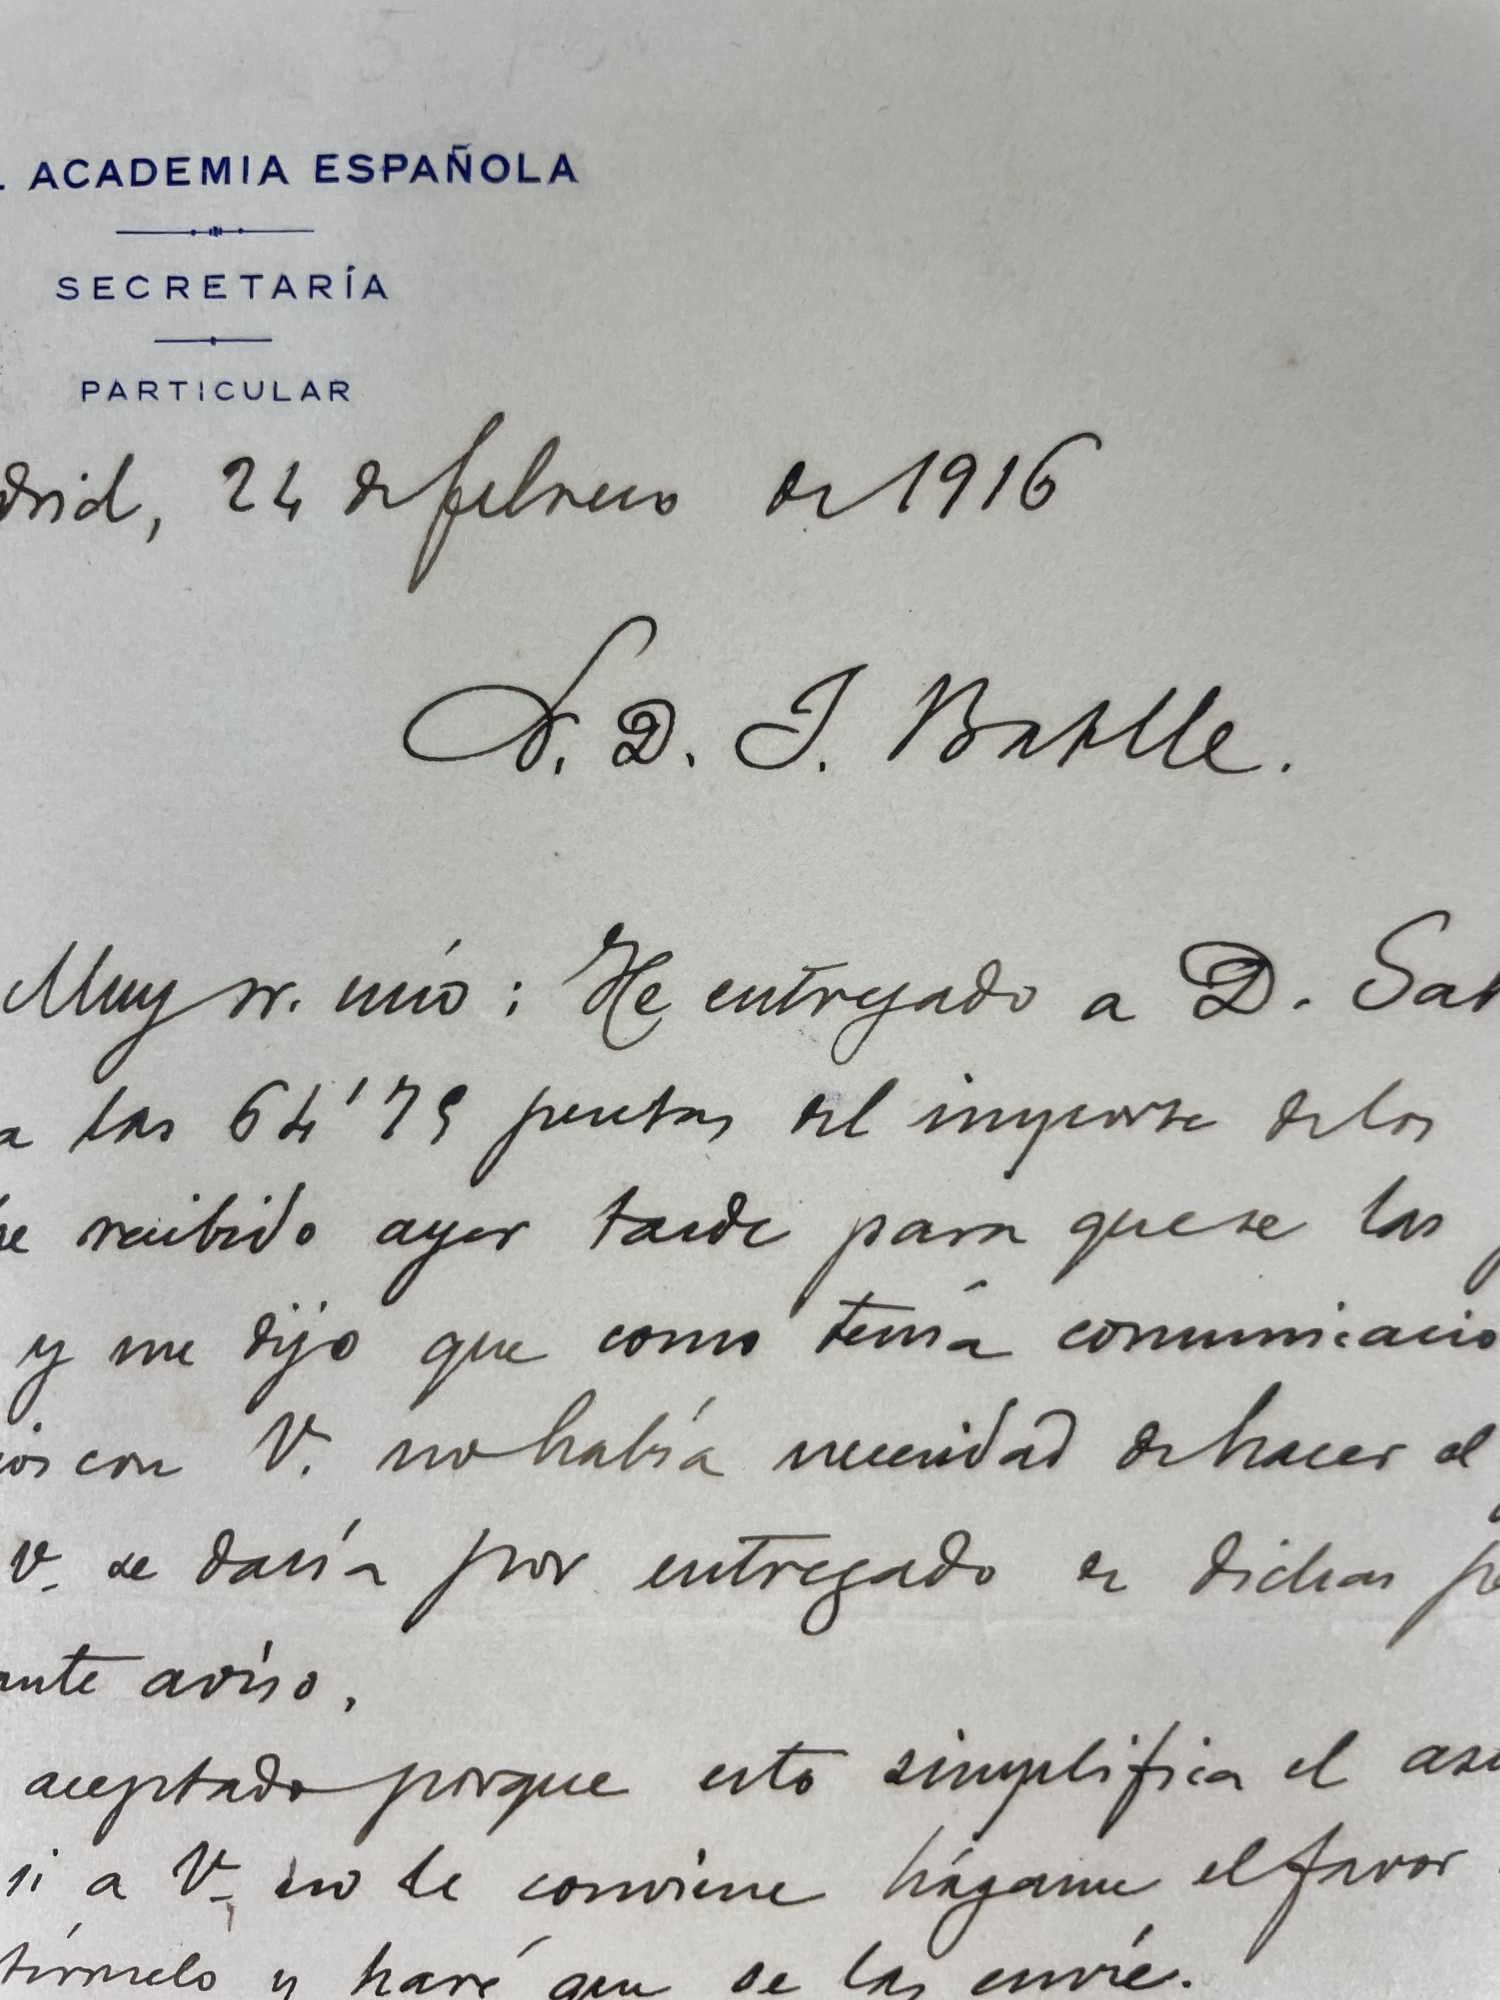 ACADEMIA ESPAÑOLA
SECRETARÍA
PARTICULAR
drid, 24 de febrero de 1916
S. D. J. Batlle.
Muy sr. mío: He entregado a D. Sat
a las 64'75 pesetas del importe de los
he recibido ayer tarde para que se las
y me dijo que como tenía comunicacio
ios con V. no había necesidad de hacer el
V. se daría por entregado de dichas pe
ante aviso.
aceptado porque esto simplifica el asu
si a V. no le conviene hágame el favor
tírmelo y haré que se las envíe.